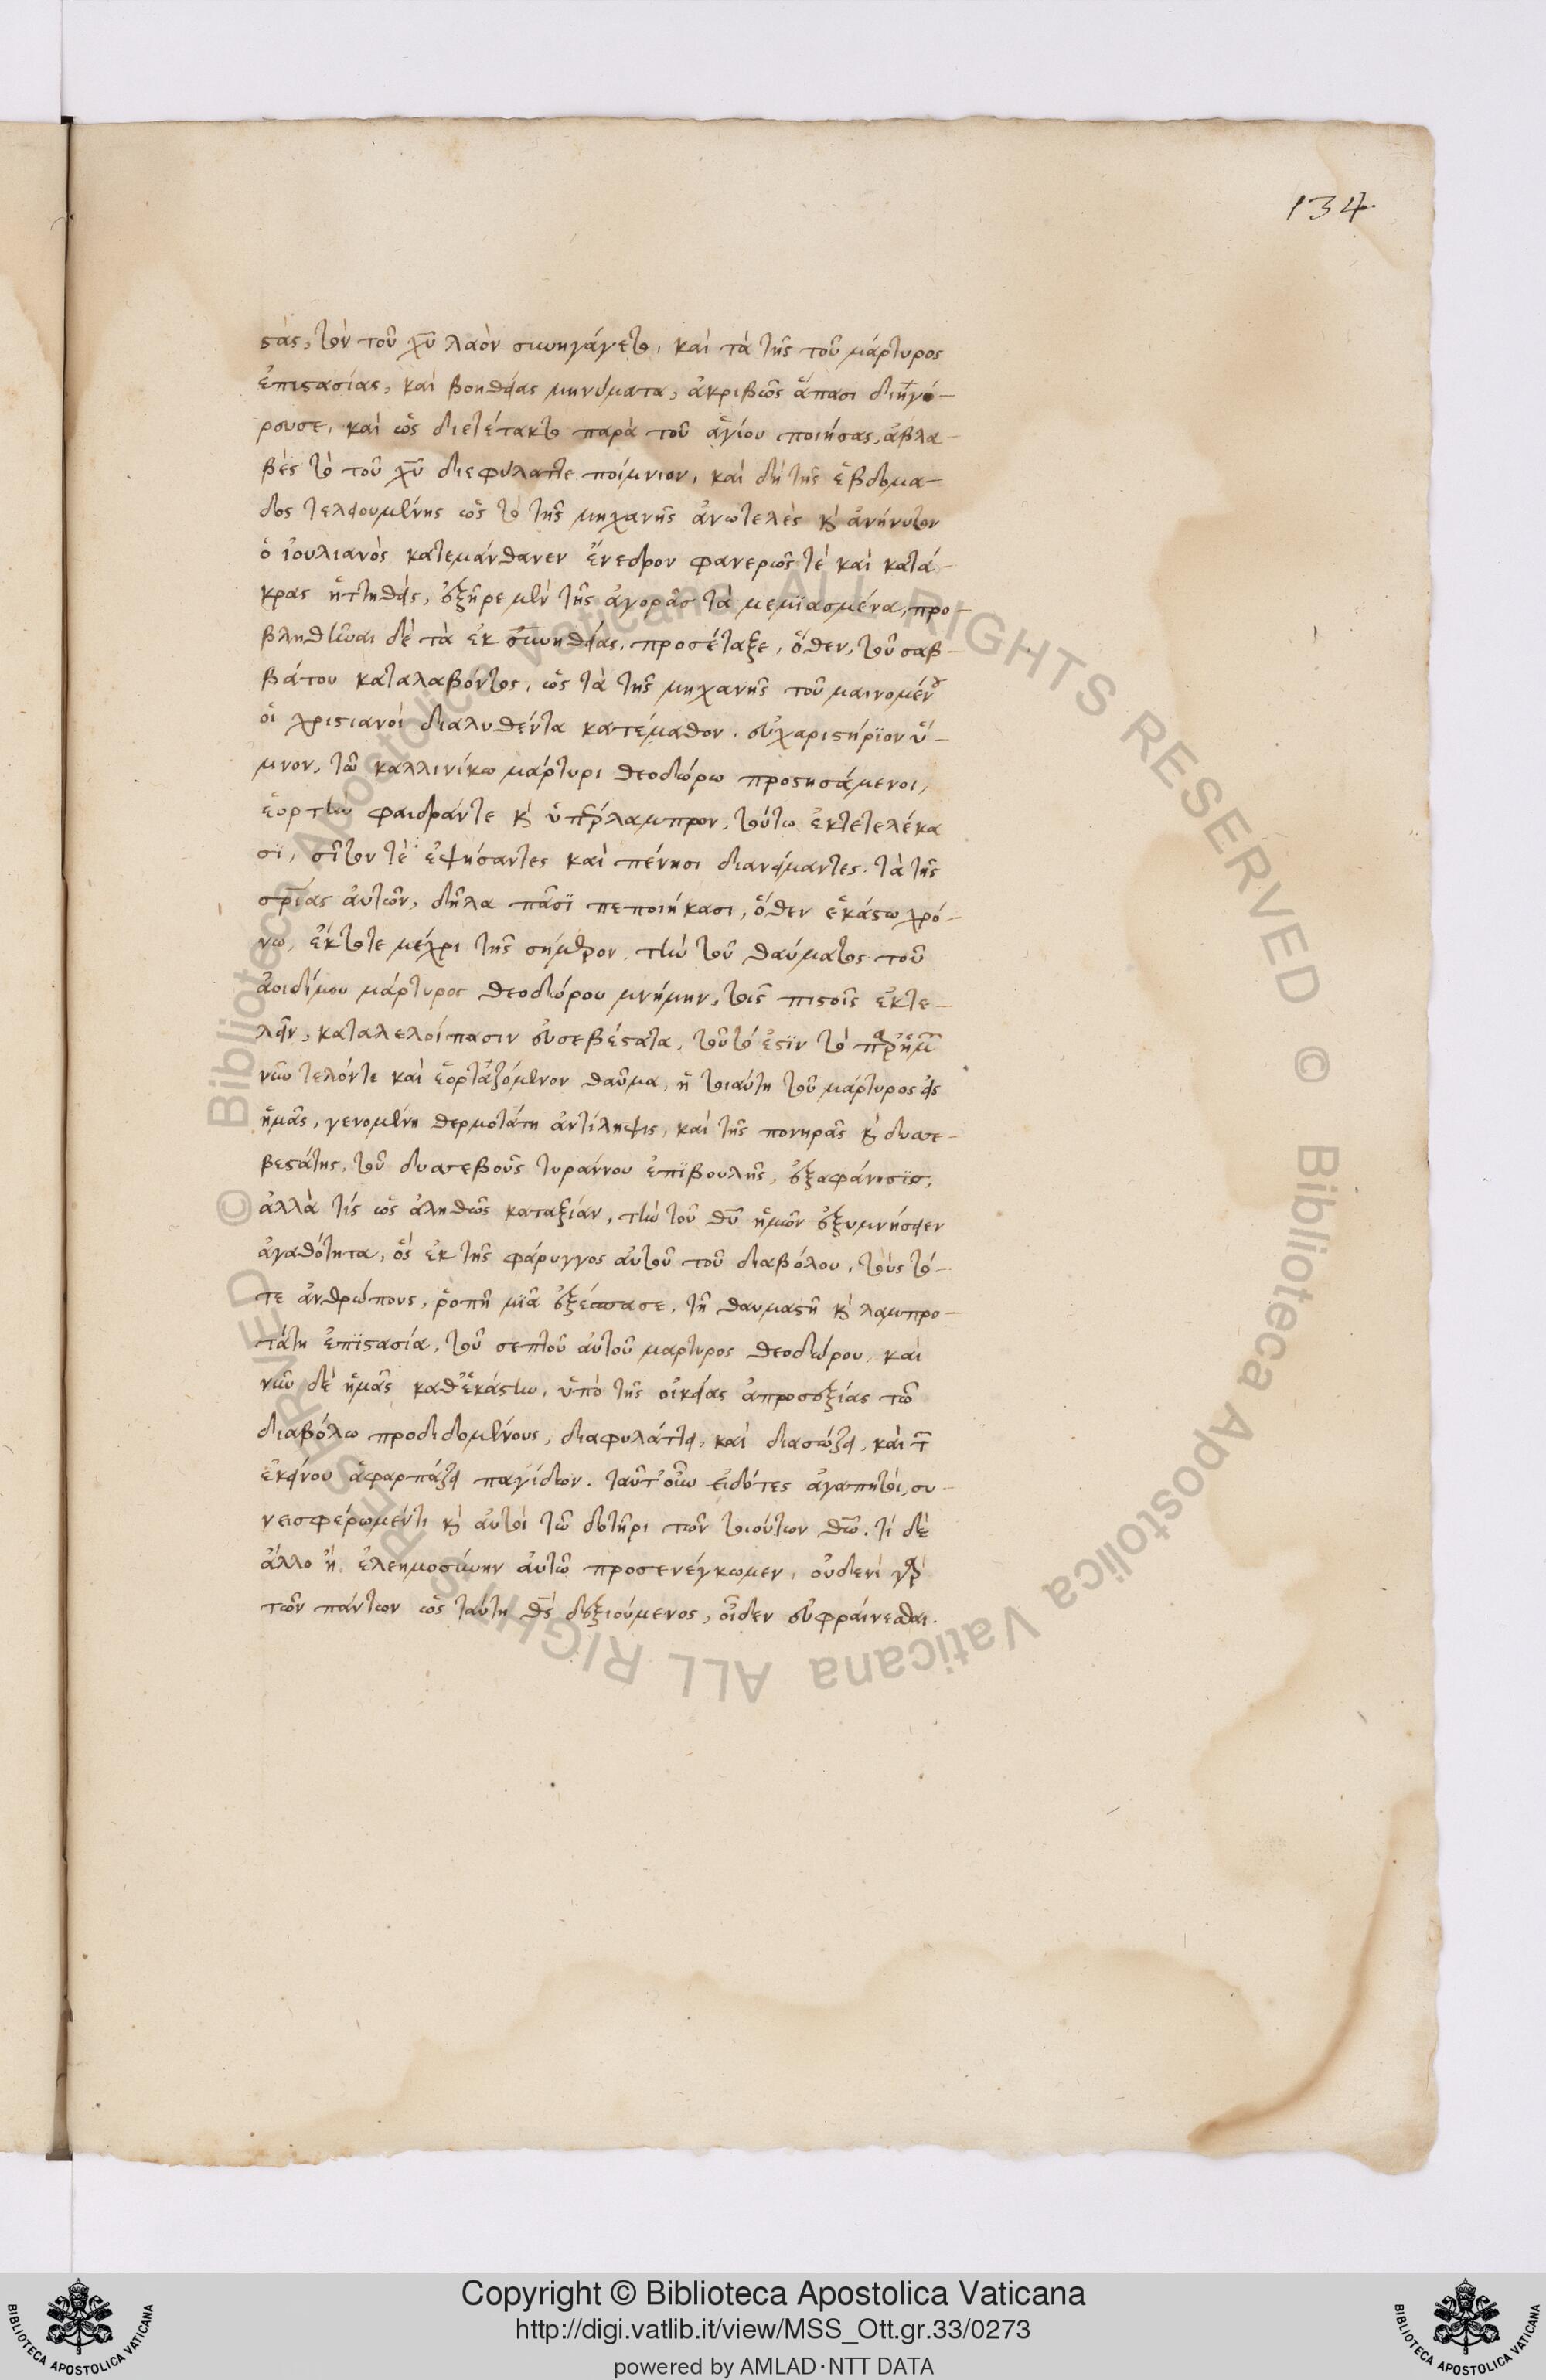 134.
στὰς, τὸν τοῦ χῦ λαὸν συνηγάγετο, καὶ τὰ τῆς τοῦ μάρτυρος
ἐπιστασίας, καὶ βοηθείας μηνύματα, ἀκριβῶς ἅπασι διηγό-
ρευσε, καὶ ὡς διετέτακτο παρὰ τοῦ ἁγίου ποιήσας, ἀβλα-
βὲς τὸ τοῦ χῦ διεφύλαττε ποίμνιον, καὶ δὴ τῆς ἑβδομά-
δος τελειουμένης ὡς τὸ τῆς μηχανῆς ἀνωτελὲς κ ἀνήνυτον
ὁ ἰουλιανὸς κατεμάνθανεν ἔνεδρον φανερῶς τὲ καὶ κατά-
κρας ἡττηθεὶς, ἐξῆρε μὲν τῆς ἀγορᾶσ τὰ μεμϊασμένα, προ-
βληθῆναι δὲ τὰ ἐκ συνηθείας, προσέταξε, ὅθεν, τοῦ σαβ-
βάτου καταλαβόντος, ὡς τὰ τῆς μηχανῆς τοῦ μαινομένου
οἱ χριστιανοὶ διαλυθέντα κατέμαθον. εὐχαριστήρϊον ὕ-
μνον, τῶ καλλινίκω μάρτυρι θεοδώρω προστησάμενοι,
ἑορτὴν φαιδράντε κ ὑπέρλαμπρον, τούτω ἐκτετελέκα
σϊ, σῖτον τὲ ἑψήσαντες καὶ πένησι διανείμαντες. τὰ τῆς
σρίας αὐτῶν, δῆλα πᾶσϊ πεποιήκασι, ὅθεν ἑκάστω χρό-
νω, ἔκτοτε μέχρι τῆς σήμερον, τὴν τοῦ θαύματος τοῦ
ἀοιδίμου μάρτυρος θεοδώρου μνήμην, τοῖς πιστοῖς ἐκτε-
λεῖν, καταλελοίπασιν εὐσεβέστατα, τοῦτό ἐστϊν τὸ παρ ἡμῖν
νῦν τελόντε καὶ ἑορταζόμενον θαῦμα, ἡ τοιαύτη τοῦ μάρτυρος εἰς
ἡμᾶς, γενομένη θερμοτάτη ἀντίληψις, καὶ τῆς πονηρᾶς κ δυσσε-
βεστάτης, τοῦ δυσσεβοῦς τυράννου ἐπϊβουλῆς, ἐξαφάνισϊσ,
ἀλλὰ τίς ὡς ἀληθῶς καταξίαν, τὴν τοῦ θῦ ἡμῶν ἐξυμνήσειεν
ἀγαθότητα, ὃς ἐκ τῆς φάρυγγος αὐτοῦ τοῦ διαβόλου, τοὺς τό-
τε ἀνθρώπους, ῥοπῆ μϊᾶ ἐξέσπασε, τῆ θαυμαστῆ κ λαμπρο-
τάτη ἐπϊστασία, τοῦ σεπτοῦ αὐτοῦ μαρτυρος θεοδώρου, καὶ
νῦν δὲ ἡμᾶς καθ ἑκάστην, ὑπὸ τῆς οἰκείας ἀπροσεξίας τῶ
διαβόλω προδιδομένους, διαφυλάττει, καὶ διασώζει, καὶ τ
ἐκείνου ἀφαρπάζει παγίδων. ταῦτ οὖν εἰδότες ἀγαπητοὶ, συ-
νεισφέρωμέντι κ αὐτοὶ τῶ δοτῆρι τῶν τοιούτων θῶ. τί δὲ
ἄλλο ἢ ἐλεημοσύνην αὐτῶ προσενέγκωμεν, οὐδενὶ γὰρ
τῶν πάντων ὡς ταύτη θς δεξιούμενος, οἶδεν εὐφραίνεσθαι.
Copyright © Biblioteca Apostolica Vaticana
http://digi.vatlib.it/view/MSS_Ott.gr.33/0273
powered by AMLAD·NTT DATA
© Biblioteca Apostolica Vaticana ALL RIGHTS RESERVED © Biblioteca Apostolica Vaticana ALL RIGHTS RESERVED
BIBLIOTECA APOSTOLICA VATICANA
BIBLIOTECA APOSTOLICA VATICANA